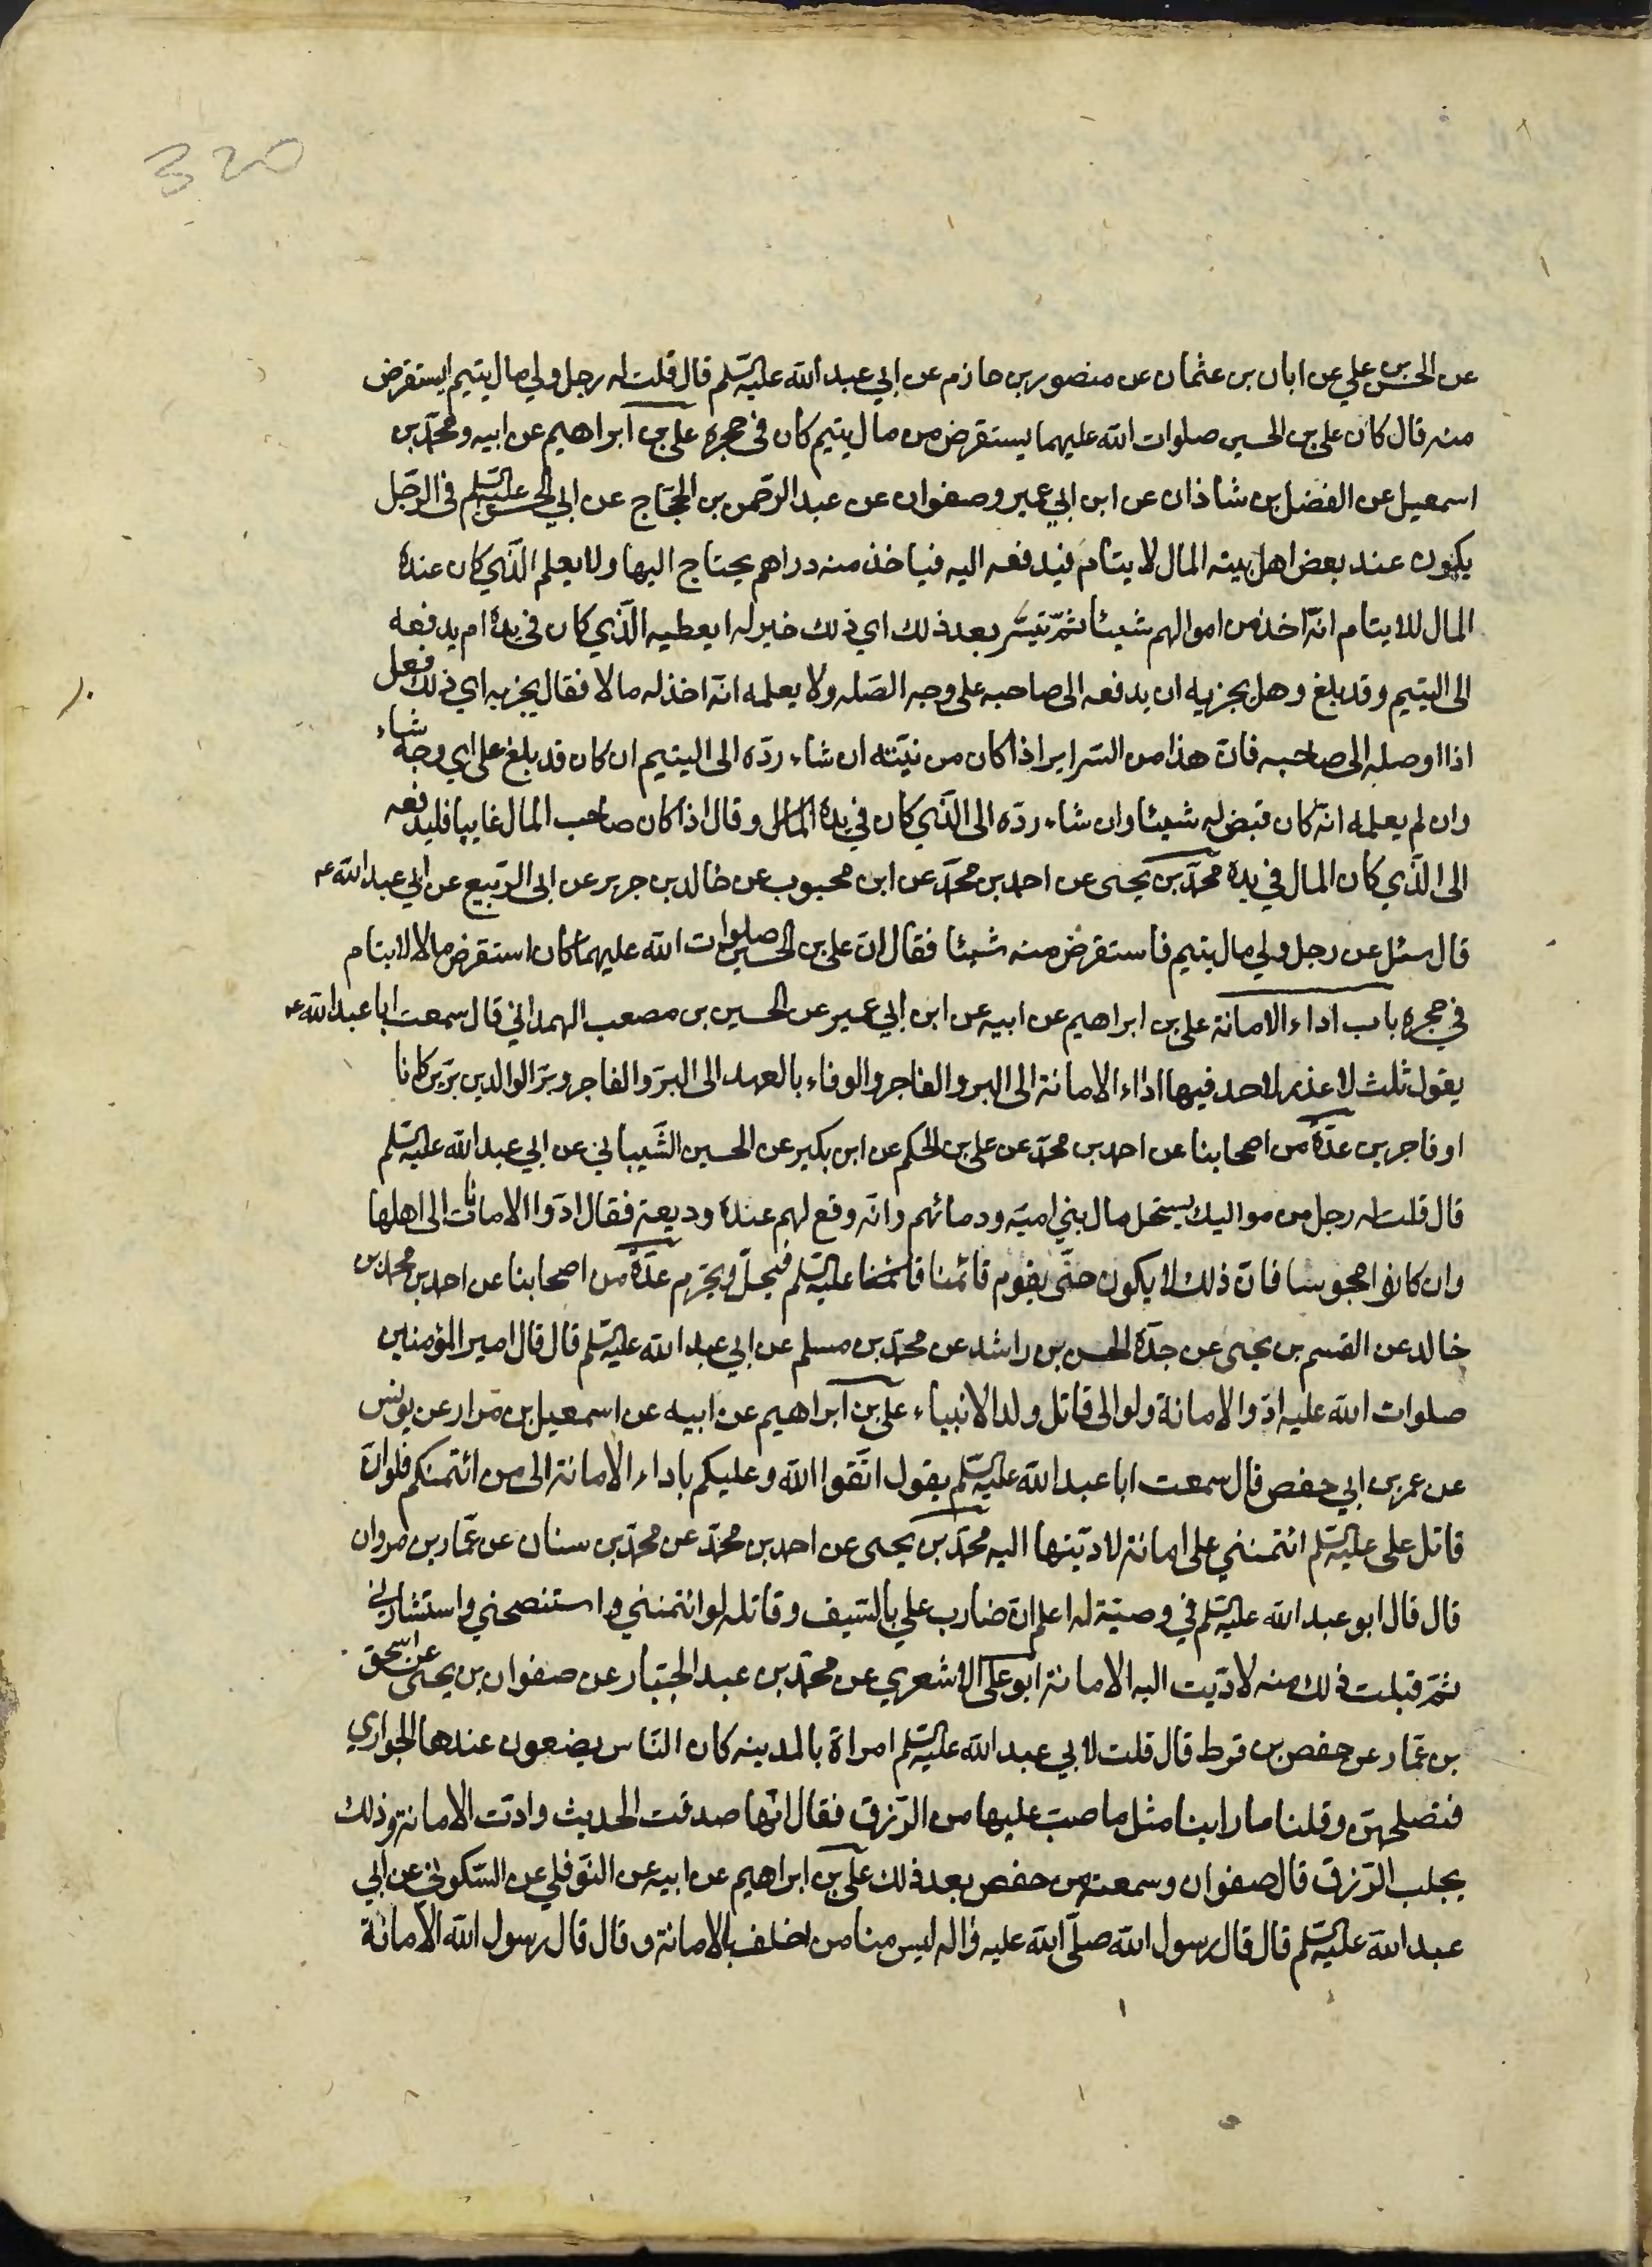 320
عن الحسن بن علي عن ابان بن عثمان عن منصور بن حازم عن ابي عبد الله عليه السلم قال قلت له رجل ولي مال يتيم ايستقرض
منه قال كان علي بن الحسين صلوات الله عليهما يستقرض من مال يتيم كان في حجره علي بن ابراهيم عن ابيه ومحمد بن
اسمعيل عن الفضل بن شاذان عن ابن ابي عمير وصفوان عن عبد الرحمن بن الحجاج عن ابي الحسن عليه السلم في الرجل
يكون عند بعض اهل بيته المال لايتام فيدفعه اليه فياخذ منه دراهم يحتاج اليها ولا يعلم الذي كان عنده
المال للايتام انه اخذ من اموالهم شيئا ثم تيسر بعد ذلك اي ذلك خير له ا يعطيه الذي كان في يده ام يدفعه
الى اليتيم وقد بلغ وهل يجزيه ان يدفعه الى صاحبه على وجه الصله ولا يعلمه انه اخذ له مالا فقال يجزيه اي ذلك فعل
اذا اوصله الى صاحبه فان هذا من السراير اذا كان من نيته ان شاء رده الى اليتيم ان كان قد بلغ على اي وجه شاء
وان لم يعلمه انه كان قبض له شيئا وان شاء رده الى الذي كان في يده المال وقال اذا كان صاحب المال غايبا فليدفعه
الى الذي كان المال في يده محمد بن يحيى عن احمد بن محمد عن ابن محبوب عن خالد بن جرير عن ابى الربيع عن ابي عبد الله ع
قال سئل عن رجل ولي مال يتيم فاستقرض منه شيئا فقال ان علي بن الحسين صلوات الله عليهما كان استقرض مالا لايتام
في حجره باب اداء الامانة علي بن ابراهيم عن ابيه عن ابن ابي عمير عن الحسين بن مصعب الهمداني قال سمعت ابا عبد الله ع
يقول ثلث لا عذر لاحد فيها اداء الامانة الى البر والفاجر والوفاء بالعهد الى البر والفاجر وبر الوالدين برين كانا
او فاجرين عدة من اصحابنا عن احمد بن محمد عن علي بن الحكم عن ابن بكير عن الحسين الشيباني عن ابي عبد الله عليه السلم
قال قلت له رجل من مواليك يستحل مال بني امية ودمائهم وانه وقع لهم عنده وديعة فقال ادوا الامانات الى اهلها
وان كانوا مجوسا فان ذلك لا يكون حتى يقوم قائمنا عليه السلم فيحل ويحرم عدة من اصحابنا عن احمد بن محمد بن
خالد عن القسم بن يحيى عن جده الحسن بن راشد عن محمد بن مسلم عن ابي عبد الله عليه السلم قال قال امير المؤمنين
صلوات الله عليه ادوا الامانة ولو الى قاتل ولد الانبياء علي بن ابراهيم عن ابيه عن اسمعيل بن مرار عن يونس
عن عمر بن ابي حفص قال سمعت ابا عبد الله عليه السلم يقول اتقوا الله وعليكم باداء الامانة الى من ائتمنكم فلو ان
قاتل علي عليه السلم ائتمنني على امانة لاديتها اليه محمد بن يحيى عن احمد بن محمد عن محمد بن سنان عن عمار بن مروان
قال قال ابو عبد الله عليه السلم في وصية له اعلم ان ضارب علي بالسيف وقاتله لو ائتمنني واستنصحني واستشارني
ثم قبلت ذلك منه لاديت اليه الامانة ابو علي الاشعري عن محمد بن عبد الجبار عن صفوان بن يحيى عن اسحق
بن عمار عن حفص بن قرط قال قلت لابي عبد الله عليه السلم امراة بالمدينه كان الناس يضعون عندها الجواري
فتصلحهن وقلنا ما راينا مثل ما صب عليها من الرزق فقال انها صدقت الحديث وادت الامانة وذلك
يجلب الرزق قال صفوان وسمعته من حفص بعد ذلك علي بن ابراهيم عن ابيه عن النوفلي عن السكوني عن ابي
عبد الله عليه السلم قال قال رسول الله صلى الله عليه واله ليس منا من اخلف بالامانة وقال قال رسول الله الامانة